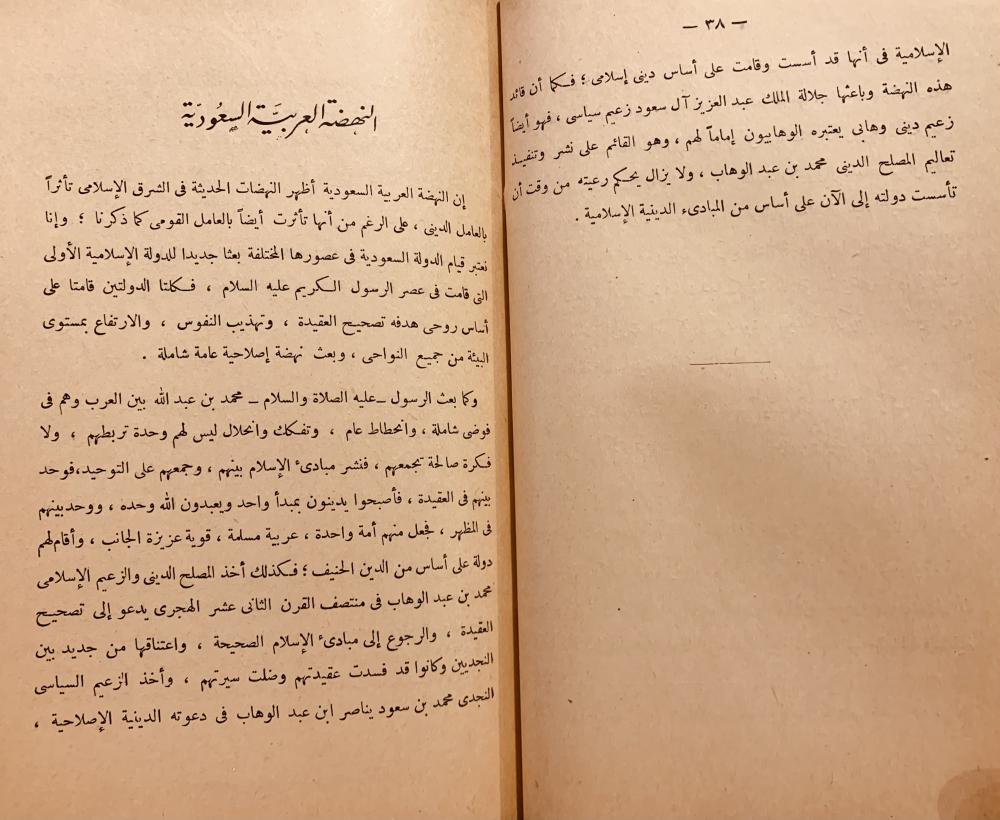 — ٣٨ —
الإسلامية فى أنها قد أسست وقامت على أساس دينى إسلامى ؛ فكما أن قائد
هذه النهضة وباعثها جلالة الملك عبد العزيز آل سعود زعيم سياسى ، فهو أيضاً
زعيم دينى وهابى يعتبره الوهابيون إماماً لهم ، وهو القائم على نشر وتنفيذ
تعاليم المصلح الدينى محمد بن عبد الوهاب ، ولا يزال يحكم رعيته من وقت أن
تأسست دولته إلى الآن على أساس من المبادىء الدينية الإسلامية .
النهضة العربيَّة السعُوديّة
إن النهضة العربية السعودية أظهر النهضات الحديثة فى الشرق الإسلامى تأثراً
بالعامل الدينى ، على الرغم من أنها تأثرت أيضاً بالعامل القومى كما ذكرنا ؛ وإنا
نعتبر قيام الدولة السعودية فى عصورها المختلفة بعثا جديدا للدولة الإسلامية الأولى
التى قامت فى عصر الرسول الكريم عليه السلام ، فكلتا الدولتين قامتا على
أساس روحى هدفه تصحيح العقيدة ، وتهذيب النفوس ، والارتفاع بمستوى
البيئة من جميع النواحى ، وبعث نهضة إصلاحية عامة شاملة .
وكما بعث الرسول ــ عليه الصلاة والسلام ــ محمد بن عبد الله بين العرب وهم فى
فوضى شاملة ، وانحطاط عام ، وتفكك وانحلال ليس لهم وحدة تربطهم ، ولا
فكرة صالحة تجمعهم ، فنشر مبادىء الإسلام بينهم ، وجمعهم على التوحيد، فوحد
بينهم فى العقيدة ، فأصبحوا يدينون بمبدأ واحد ويعبدون الله وحده ، ووحد بينهم
فى المظهر ، فجعل منهم أمة واحدة ، عربية مسلمة ، قوية عزيزة الجانب ، وأقام لهم
دولة على أساس من الدين الحنيف ؛ فكذلك أخذ المصلح الدينى والزعيم الإسلامى
محمد بن عبد الوهاب فى منتصف القرن الثانى عشر الهجرى يدعو إلى تصحيح
العقيدة ، والرجوع إلى مبادىء الإسلام الصحيحة ، واعتناقها من جديد بين
النجديين وكانوا قد فسدت عقيدتهم وضلت سيرتهم ، وأخذ الزعيم السياسى
النجدى محمد بن سعود يناصر ابن عبد الوهاب فى دعوته الدينية الإصلاحية ،